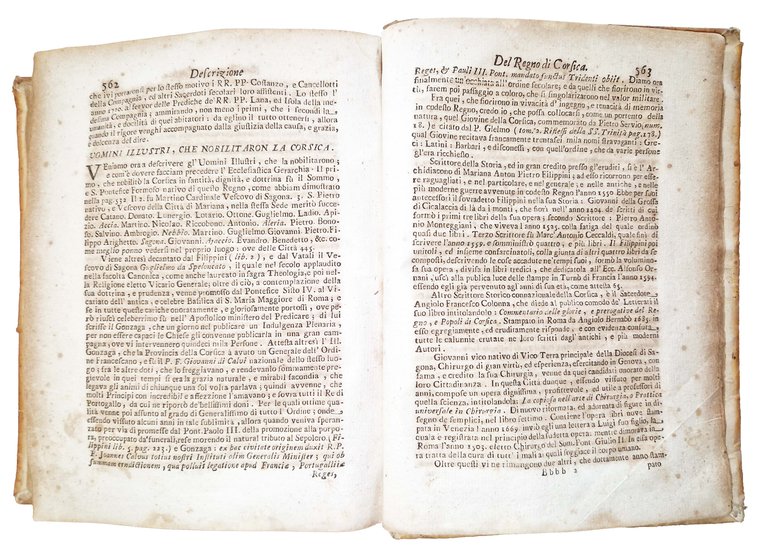 562 Descrizione
che ivi portaronsi per lo stesso motivo i RR. PP. Costanzo, e Cancellotti
della Compagnia, ed altri Sacerdoti secolari loro assistenti. Lo stesso l'
anno al fervor delle Prediche de' RR. PP. Lana, ed Isola della me-
desima Compagnia; ammirando, non meno i primi, che i secondi la
umanità, e docilità di quei abitatori; da eglino il tutto ottenersi, allora
quando il rigore venghi accompagnato dalla giustizia della causa, e grazia,
e dolcezza del dire.
UOMINI ILLUSTRI, CHE NOBILITARON LA CORSICA.
VEniamo ora a descrivere gl'Uomini Illustri, che la nobilitarono;
e com'è dovere facciam precedere l'Ecclesiastica Gerarchia. Il pri-
mo, che nobilitò la Corsica in santità, dignità, e dottrina fù il Sommo,
e S. Pontefice Formoso nativo di questo Regno, come abbiam dimostrato
nella pag. 532. Il 2. fù Martino Cardinale Vescovo di Sagona. 3. S. Pietro
nativo, e Vescovo della Città di Mariana, nella stessa Sede meritò succe-
dere Catano. Dorato. Lunergio. Lotario. Ottone. Guglielmo. Ladio. Api-
zio. Accia. Martino. Nicolao. Riccobono. Antonio. Aleria. Pietro. Bono-
so. Salvino. Ambrogio. Nebbio. Martino. Guglielmo Giovanni. Pietro. Fi-
lippo Arighetto. Sagona. Giovanni. Ajaccio. Evandro. Benedetto, &c. co-
me meglio ponno vedersi nel proprio luogo: ove delle Città 445.
Viene altresì decantato dal Filippini (lib. 2), e dal Vatali il Ve-
scovo di Sagona Guglielmo da Speloncato, il quale nel secolo applaudito
nella Cattedra Canonica, come anche laureato in sagra Theologia, e poi nel-
la Religione eletto Vicario Generale; oltre di ciò, a contemplazione della
sua dottrina, e prudenza, venne promosso dal Pontefice Sisto IV. al Vi-
cariato dell'antica, e celebre Basilica di S. Maria Maggiore di Roma; e se
in tutte queste cariche onoratamente, e gloriosamente portosi, ove pe-
rò riuscì celeberrimo fù nell'Apostolico ministero del Predicare; di lui
scrisse il Gonzaga, che un giorno nel publicare un Indulgenza Plenaria,
per non essere capaci le Chiese gli convenne publicarla in una gran cam-
pagna, ove vi intervennero quindeci mila Persone. Attesta altresì l'Ill.
Gonzaga, che la Provincia della Corsica à avuto un Generale dell' Ordi-
ne Francescano, e fù il P. F. Giovanni di Calvi nazionale dello stesso luo-
go; fra le altre doti, che lo freggiavano, e rendevanlo sommamente pre-
gievole in quei tempi fù era la grazia naturale, e mirabil facondia, che
legava gli animi di chiunque una sol volta parlava; quindi avvenne, che
molti Principi con incredibil e affezione l'amavano; e sovra tutti il Re di
Portogallo, da cui ne riportò de' benissimi doni. Per le quali ottime qua-
lità venne poi assunto al grado di Generalissimo di tutto l'Ordine; onde
essendo vissuto alcuni anni in tale sublimità, allora quando veniva speran-
zato per via di promessa dal Pont. Paolo III. della promozione alla por-
pora, preoccupato da'funerali, rese morendo il natural tributo al Sepolcro, (Fi-
lippini lib. 5. pag. 223.) e Gonzaga: ex hac civitate originem duxit R. P.
F. Joannes Calvus totius nostri Instituti olim Generalis Minister; qui ob
summam eruditionem, qua polluit legatione apud Franciæ, Portugalliæ
Reges,
Del Regno di Corsica. 563
Reges, & Pauli III. Pont. mandato functus Tridenti obiit. Diamo ora
finalmente un'occhiata all'ordine secolare, e da quelli che fiorirono in vir-
tù, facem poi passaggio a coloro, che si singolarizarono nel valor militare.
Fra quei, che fiorirono in vivacità d'ingegno, e tenacità di memoria
in codesto Regno, credo io, che possa collocarsi, come un portento della
natura, quel Giovine della Corsica, commemorato da Pietro Servio, num.
18. Je citato dal P. Gielmo (tom. 2. Rifless. della SS. Trinità pag. 178.)
qual Giovine recitava francamente trentasei mila nomi stravaganti, e
Greci: Latini: Barbari, e disconnessi, con quell'ordine, che da varie persone
gl'era richiesto.
Scrittore della Storia, ed in gran credito presso gl'eruditi, si è l'Ar-
chidiacono di Mariana Anton Pietro Filippini, ad esso per verità siam tenuti per
ragguagliarci, e nel particolare, e nel generale; e nelle antiche, e nelle
più moderne guerre avvenute in codesto Regno l'anno 1550. Ebbe per suoi
antecessori il sovradetto Filippini nella sua Storia: Giovanni della Grossa
di Cicalaccia di là da i monti, che fiorì nell'anno 1404. de scritti di cui
formò i primi tre libri della sua opera; secondo Scrittore: Pietro Antonio
Monteggiani, che viveva l'anno 1525. colla fatiga del quale ordinò
quasi due libri. Terzo Scrittore fù Marc' Antonio Ceccaldi, quale finì di
scrivere l'anno 1559. e somministrò quattro, e più libri. Il Filippini uni-
tili, ed insieme consarcinatili, colla giunta di altri quattro libri da se com-
posti, descrivendo le cose accadute ne' tempi suoi, formò la volumino-
sa sua opera, divisa in libri tredici, che dedicatola all'Ecc. Alfonso Or-
nani, usci alla luce delle stampe in Turnò di Francia l'anno 1594.
essendo egli già pervenuto agl'anni di sua età, sopra li 65.
Altro Scrittore Storico connazionale della Corsica, è il Sacerdote
Angiolo Francesco Colonna, che diede al publico comodo de' Letterati il
suo libro intitolato: Commentario delle glorie, e prerogative del Re-
gno, e Popoli di Corsica. Stampato in Roma da Angelo Bernabò 1685. in
esso dottamente, ed eruditamente risponde, e con evidenza confuta
tutte le calunnie erutate ne loro scritti dagl' antichi, e più moderni
Autori.
Giovanni vico nativo di Vico Terra principale della Diocesi di Sa-
gona, Chirurgo di gran virtù, ed esperienza, esercitando in Genova, con
fama, e credito la sua Chirurgia, venne da quei candidati onorato della
loro Cittadinanza. In questa Città dunque, essendo vissuto per molti
anni, compose un opera dignissima, profittevole, ad utile a professori di
quella scienza, intitolandola: La copiosa nell'arte di Chirurgia, o Prattica
universale in Chirurgia. Di nuovo riformata, ed adornata di figure in di-
segno de semplici, nel libro settimo. Contiene l'opera libri nove stam-
pata in Venezia l'anno 1669. invii egli una lettera a Luigi suo figlio, la
cuale e registrata nel principio della sudetta opera, mentre dimorava in
Roma l'anno 1503. eletto Chirurgo del Som. Pont. Giulio II. in essa opera
tratta della cura di tutt' i mali a quali soggiace il corpo umano.
Oltre questi vi ne rimangono due altri, che dottamente anno stam-
Bbbb 2 pato